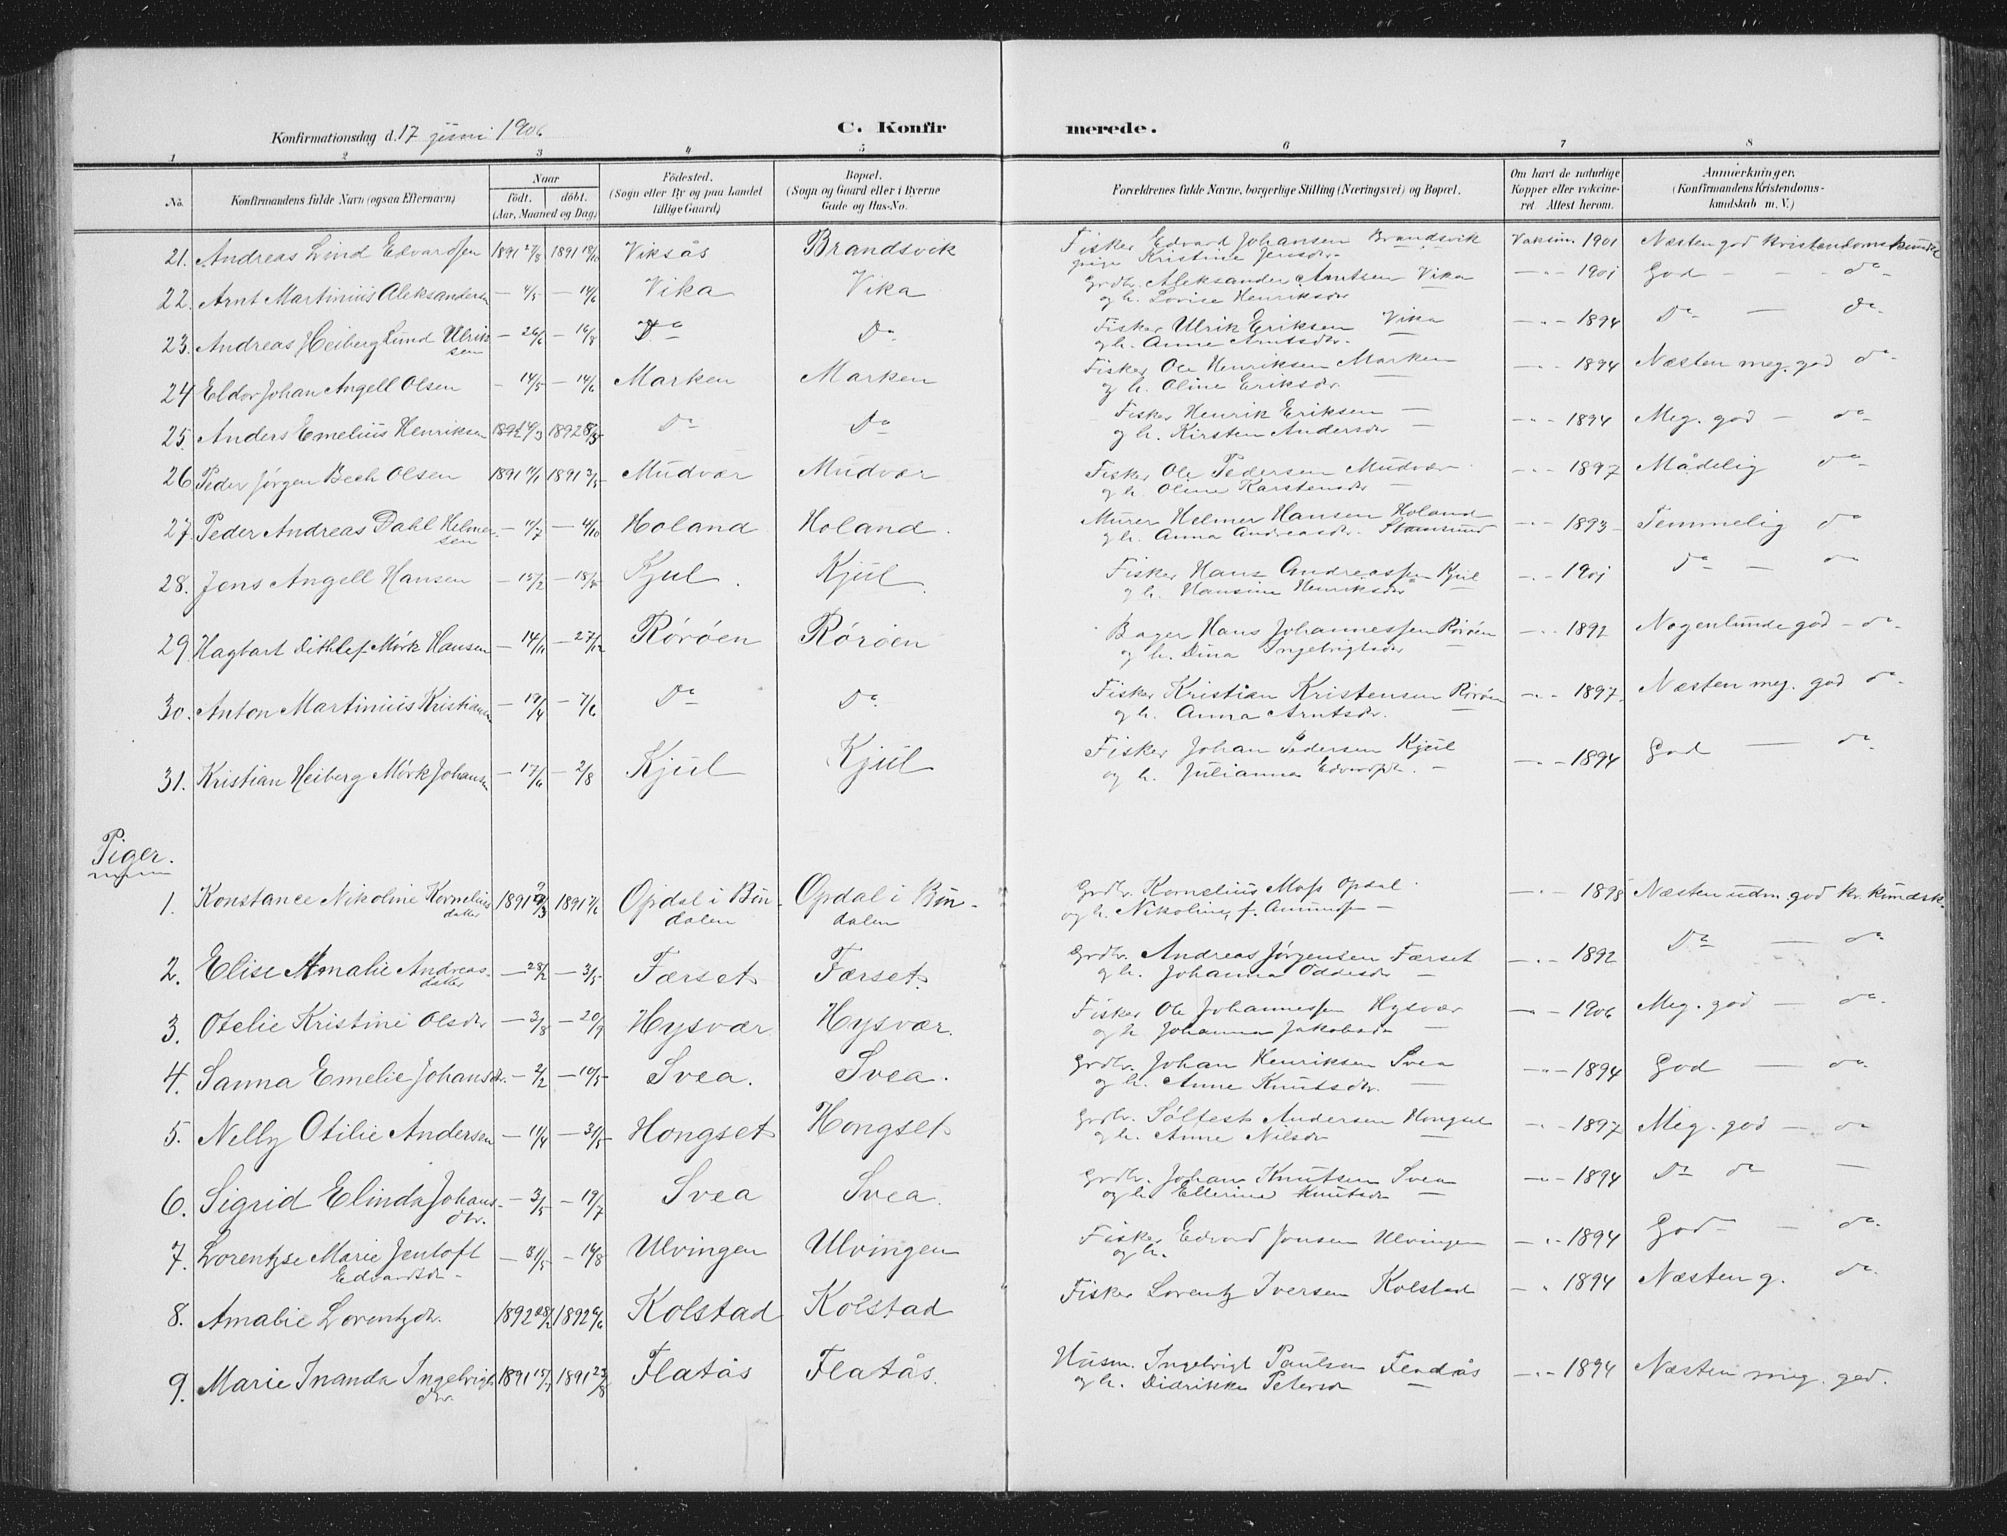 Konfirmationsdag d. 17 juni 1906
C. Konfirmerede.
1 2 3 4 5 6 7 8
No. Konfirmandens fulde Navn (ogsaa Efternavn) Naar født. døbt. (Aar, Maaned og Dag) Födested. (Sogn eller By og paa Landet tillige Gaard) Bopæl. (Sogn og Gaard eller i Byerne Gade og Hus-No. Forældrenes fulde Navne, borgerlige Stilling (Næringsvei) og Bopæl. Om havt de naturlige Kopper eller vakcineret. Attest herom. Anmærkninger. (Konfirmandens Kristendomskundskab m. V.)
21. Andreas Lind Edvardsen 1891 27/8 1891 18/10 Viksås Brandsvik Fisker Edvard Johansen Brandsvik Vaksin. 1901 Næsten god kristendomskundsk
pige Kristine Jensdr.
22. Arnt Martinius Aleksandersen — 4/5 — 14/6 Vika Vika Grdbr. Aleksander Arntsen Vika — " — 1901 God — — do
og h. Lovise Henriksdr
23. Andreas Heiberg Lund Ulriksen — 26/6 — 16/8 Do Do Fisker Ulrik Eriksen Vika — " — 1894 Do — do
og h. Anne Arntsdr.
24 Eldor Johan Angell Olsen — 14/5 — 14/6 Marken Marken Fisker Ole Henriksen Marken — " — 1894 Næsten meg. god do
og h. Oline Eriksdr.
25. Anders Emelius Henriksen 1892 1892 8/5 Do Do Fisker Henrik Eriksen — — " — 1894 Meg. god — do
og h. Kirsten Andersdr
26 Peder Jørgen Bech Olsen 1891 1891 3/5 Mudvær Mudvær Fisker Ole Pedersen Mudvær — " — 1897 Mådelig do
og h. Oline Karstensdr
27. Peder Andreas Dahl Helmersen — 11/7 — 4/10 Holand Holand. Murer Helmer Hansen Holand — " — 1893 Temmelig do
og h. Anna Andreasdr. Stamsund
28. Jens Angell Hansen — 15/2 — 18/5 Kjul. Kjul. Fisker Hans Andreassen Kjul — " — 1901 do — do
og h. Hansine Henriksdr
29. Hagbart Dithlef Mørk Hansen — 14/11 — 27/12 Rørøen Rørøen Bager Hans Johannessen Rørøen — " — 1892 Nogenlunde god — do
og h. Dina Ingebrigtsdr
30. Anton Martinius Kristiansen — 19/4 — 7/6 Do Do Fisker Kristian Kristensen Rørøen — " — 1897 Næsten meg. god do
og h. Anna Arntsdr.
31. Kristian Heiberg Mørk Johansen — 17/6 — 2/8 Kjul Kjul Fisker Johan Pedersen Kjul — " — 1894 God — do
og h. Julianna Edvardsdr. —
Piger.
1. Konstance Nikoline Korneliusdatter 1891 1891 7/6 Opdal i Bindalen Opdal i Bindalen Grdbr. Kornelius Moss Opdal — " — 1895 Næsten udm. god kr. kundsk.
og h. Nikoline, f. Amundsen —
2. Elise Amalie Andreasdatter — 28/2 — 3/5 Færset Færset. Grdbr. Andreas Jørgensen Færset — " — 1892 Do — do
og h. Johanna Oddesdr —
3. Otelie Kristine Olsdr — 3/8 — 20/9 Hysvær Hysvær. Fisker Ole Johannessen Hysvær — " — 1906 Meg. god — do
og h Johanna Jakobsdr —
4. Sanna Emelie Johansdr. — 2/2 — 10/5 Svea. Svea. Grdbr. Johan Henriksen Svea — " — 1894 God — do
og h. Anne Knutsdr. —
5. Nelly Otilie Andersen — 11/4 — 31/5 Hongset Hongset. Grdbr. Søltest Andersen Hongset — " — 1897 Meg. god — do
og h. Anne Nilsdr —
6. Sigrid Elinda Johansdtr. — 3/5 — 19/7 Svea Svea. Grdbr. Johan Knutsen Svea — " — 1894 Do do —
og h. Ellerine Knutsdr —
7. Lorentzse Marie Jentoft Edvardsdr — — 31/5 — 16/8 Ulvingen Ulvingen Fisker Edvard Jonsen Ulvingen — " — 1894 God — do
og h.
8. Amalie Lorentzdtr. 1892 28/2 1892 6/6 Kolstad Kolstad Fisker Lorentz Iversen Kolstad — " 1894 Næsten g. do
9. Marie Inanda Ingebrigtsdtr. 1891 1891 23/8 Flatås Flatås. Husm. Ingebrigt Paulsen — " — 1894 Næsten meg. god.
og h. Didrikke Petersdr —